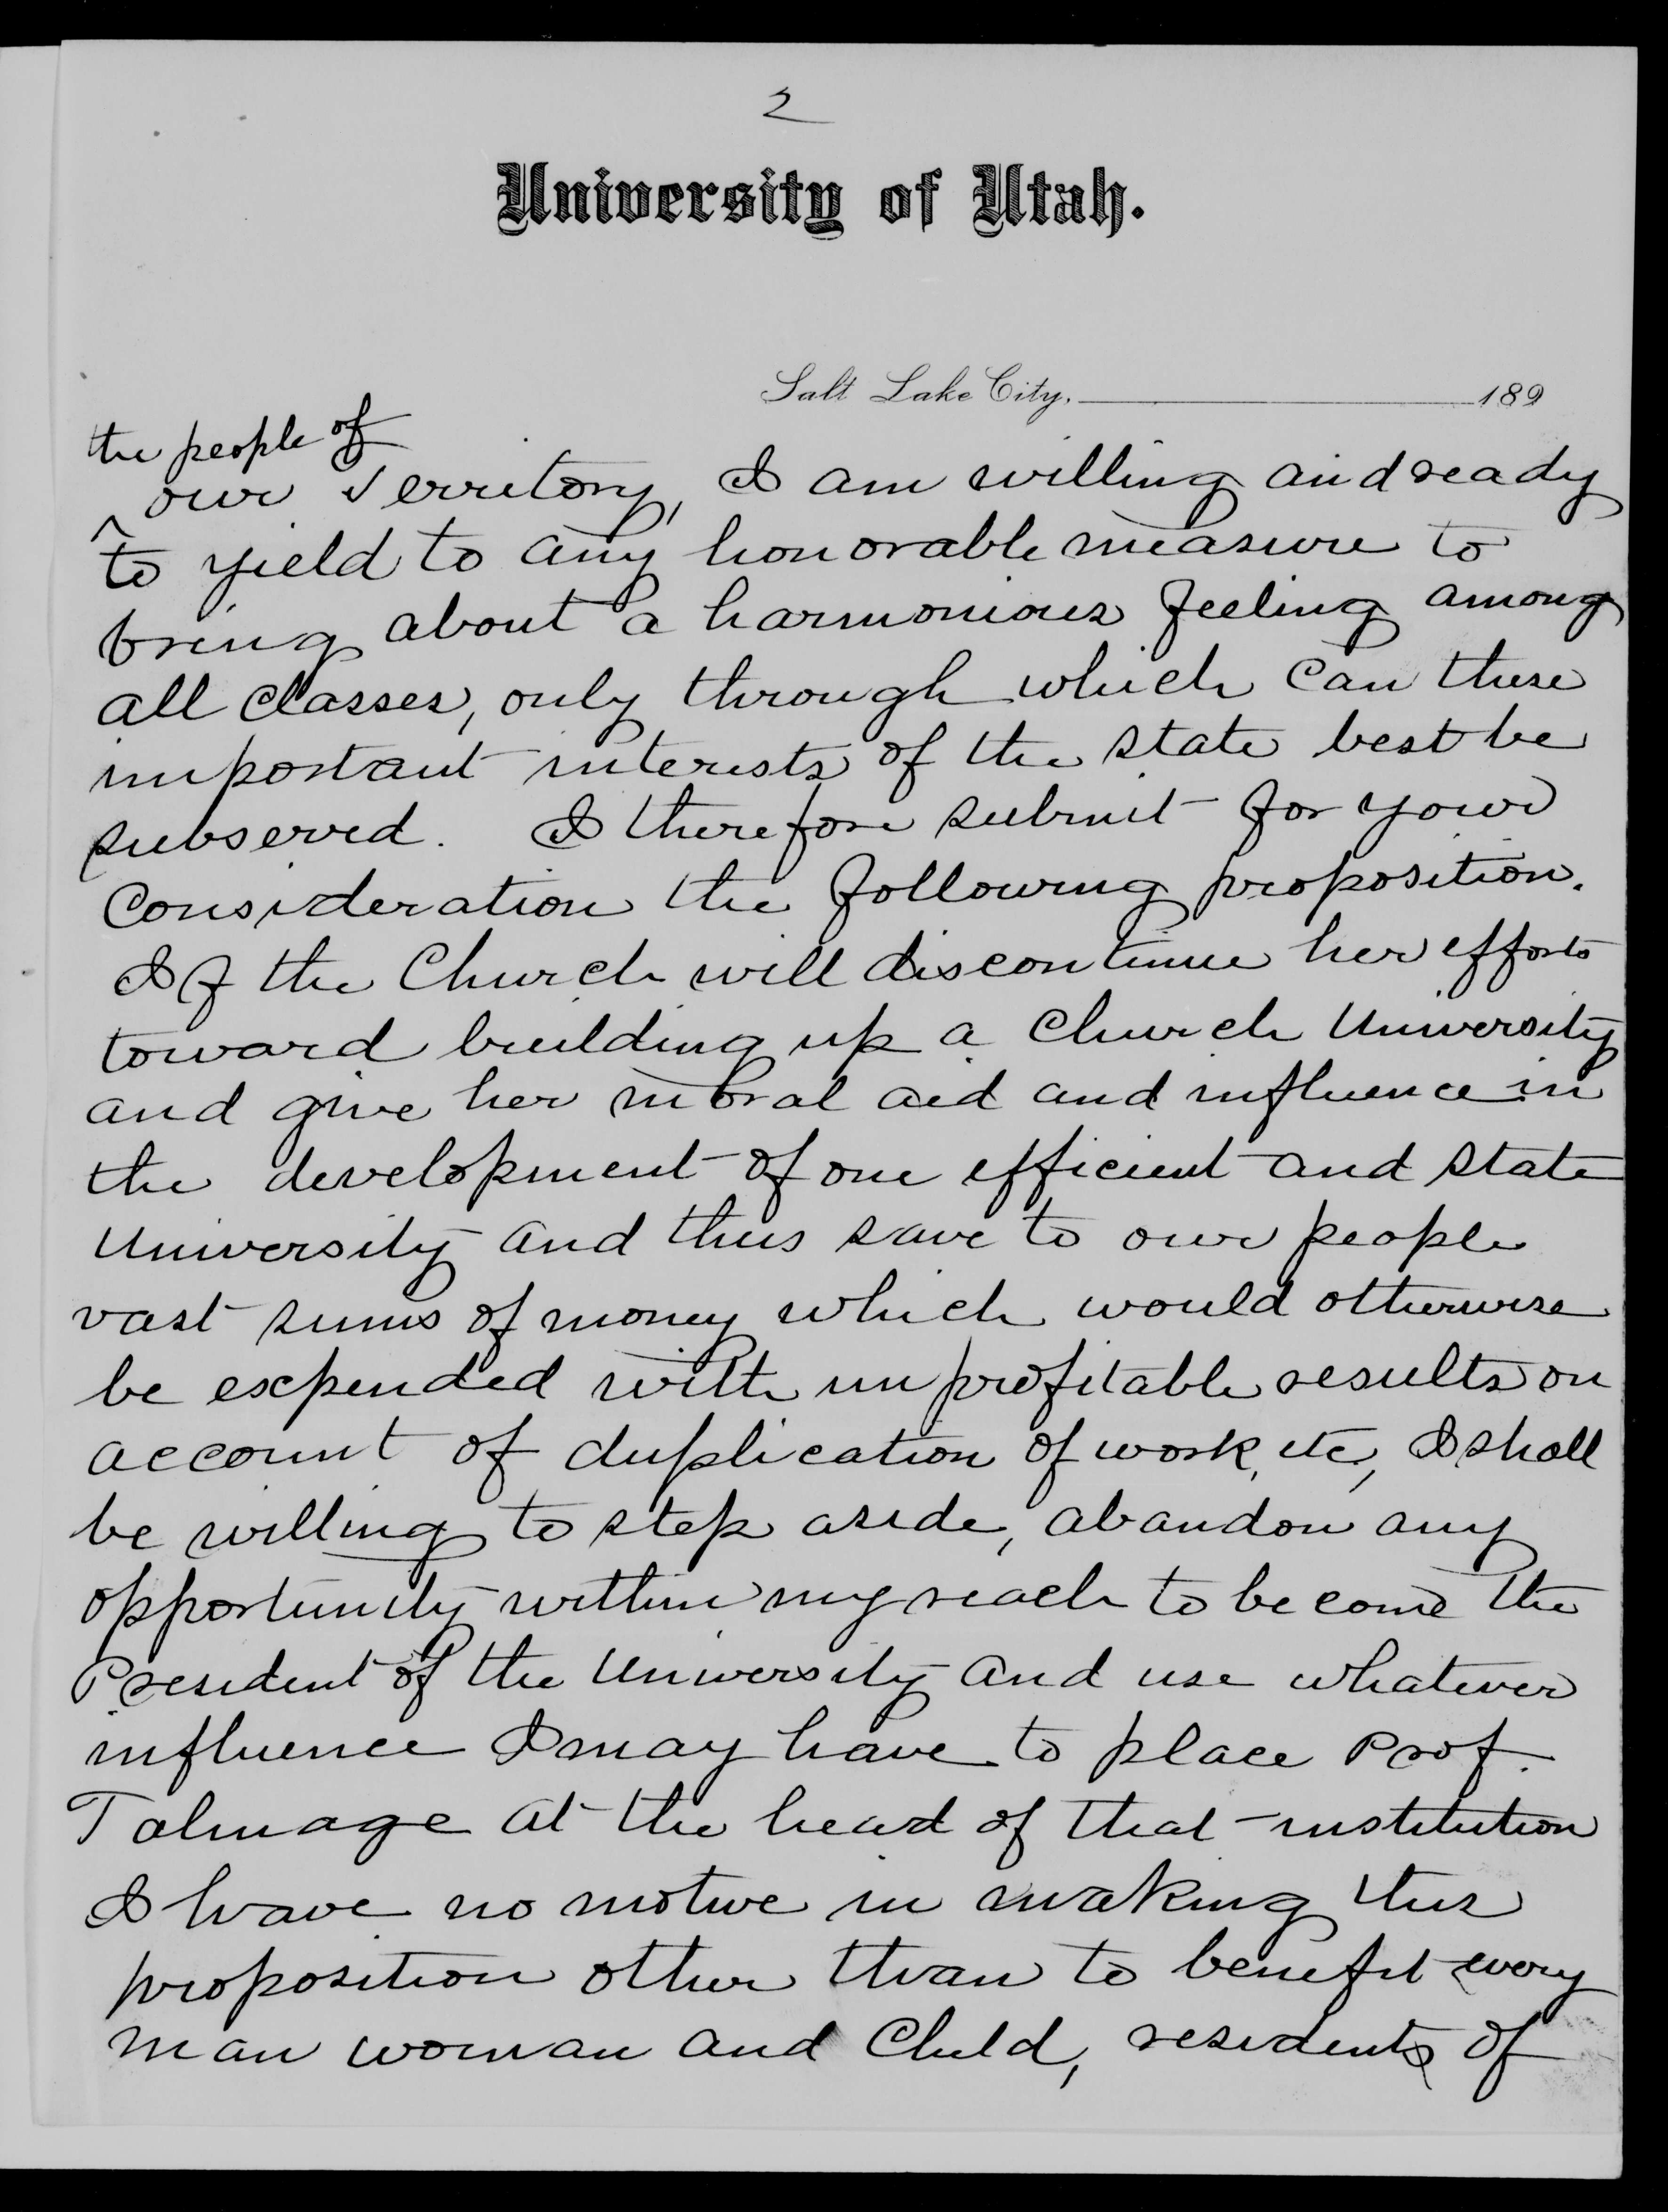 2
University of Utah.
Salt Lake City, 189
the people of
^ our Territory, I am willing and ready
to yield to any honorable measure to
bring about a harmonious feeling among
all classes, only through which can these
important interests of the state best be
subserved. I therefore submit for your
Consideration the following proposition.
If the Church will discontinue her efforts
toward building up a Church University
and give her moral aid and influence in
the development of one efficient and state
University and thus save to our people
vast sums of money which would otherwise
be expended with unprofitable results on
account of duplication of work, etc, I shall
be willing to step aside, abandon any
opportunity within my reach to become the
President of the University and use whatever
influence I may have to place Prof.
Talmage at the head of that institution
I have no motive in making this
proposition other than to benefit every
man woman and Child, residents of